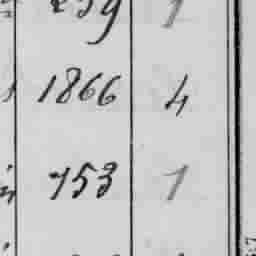 259 1
1866 4
753 1